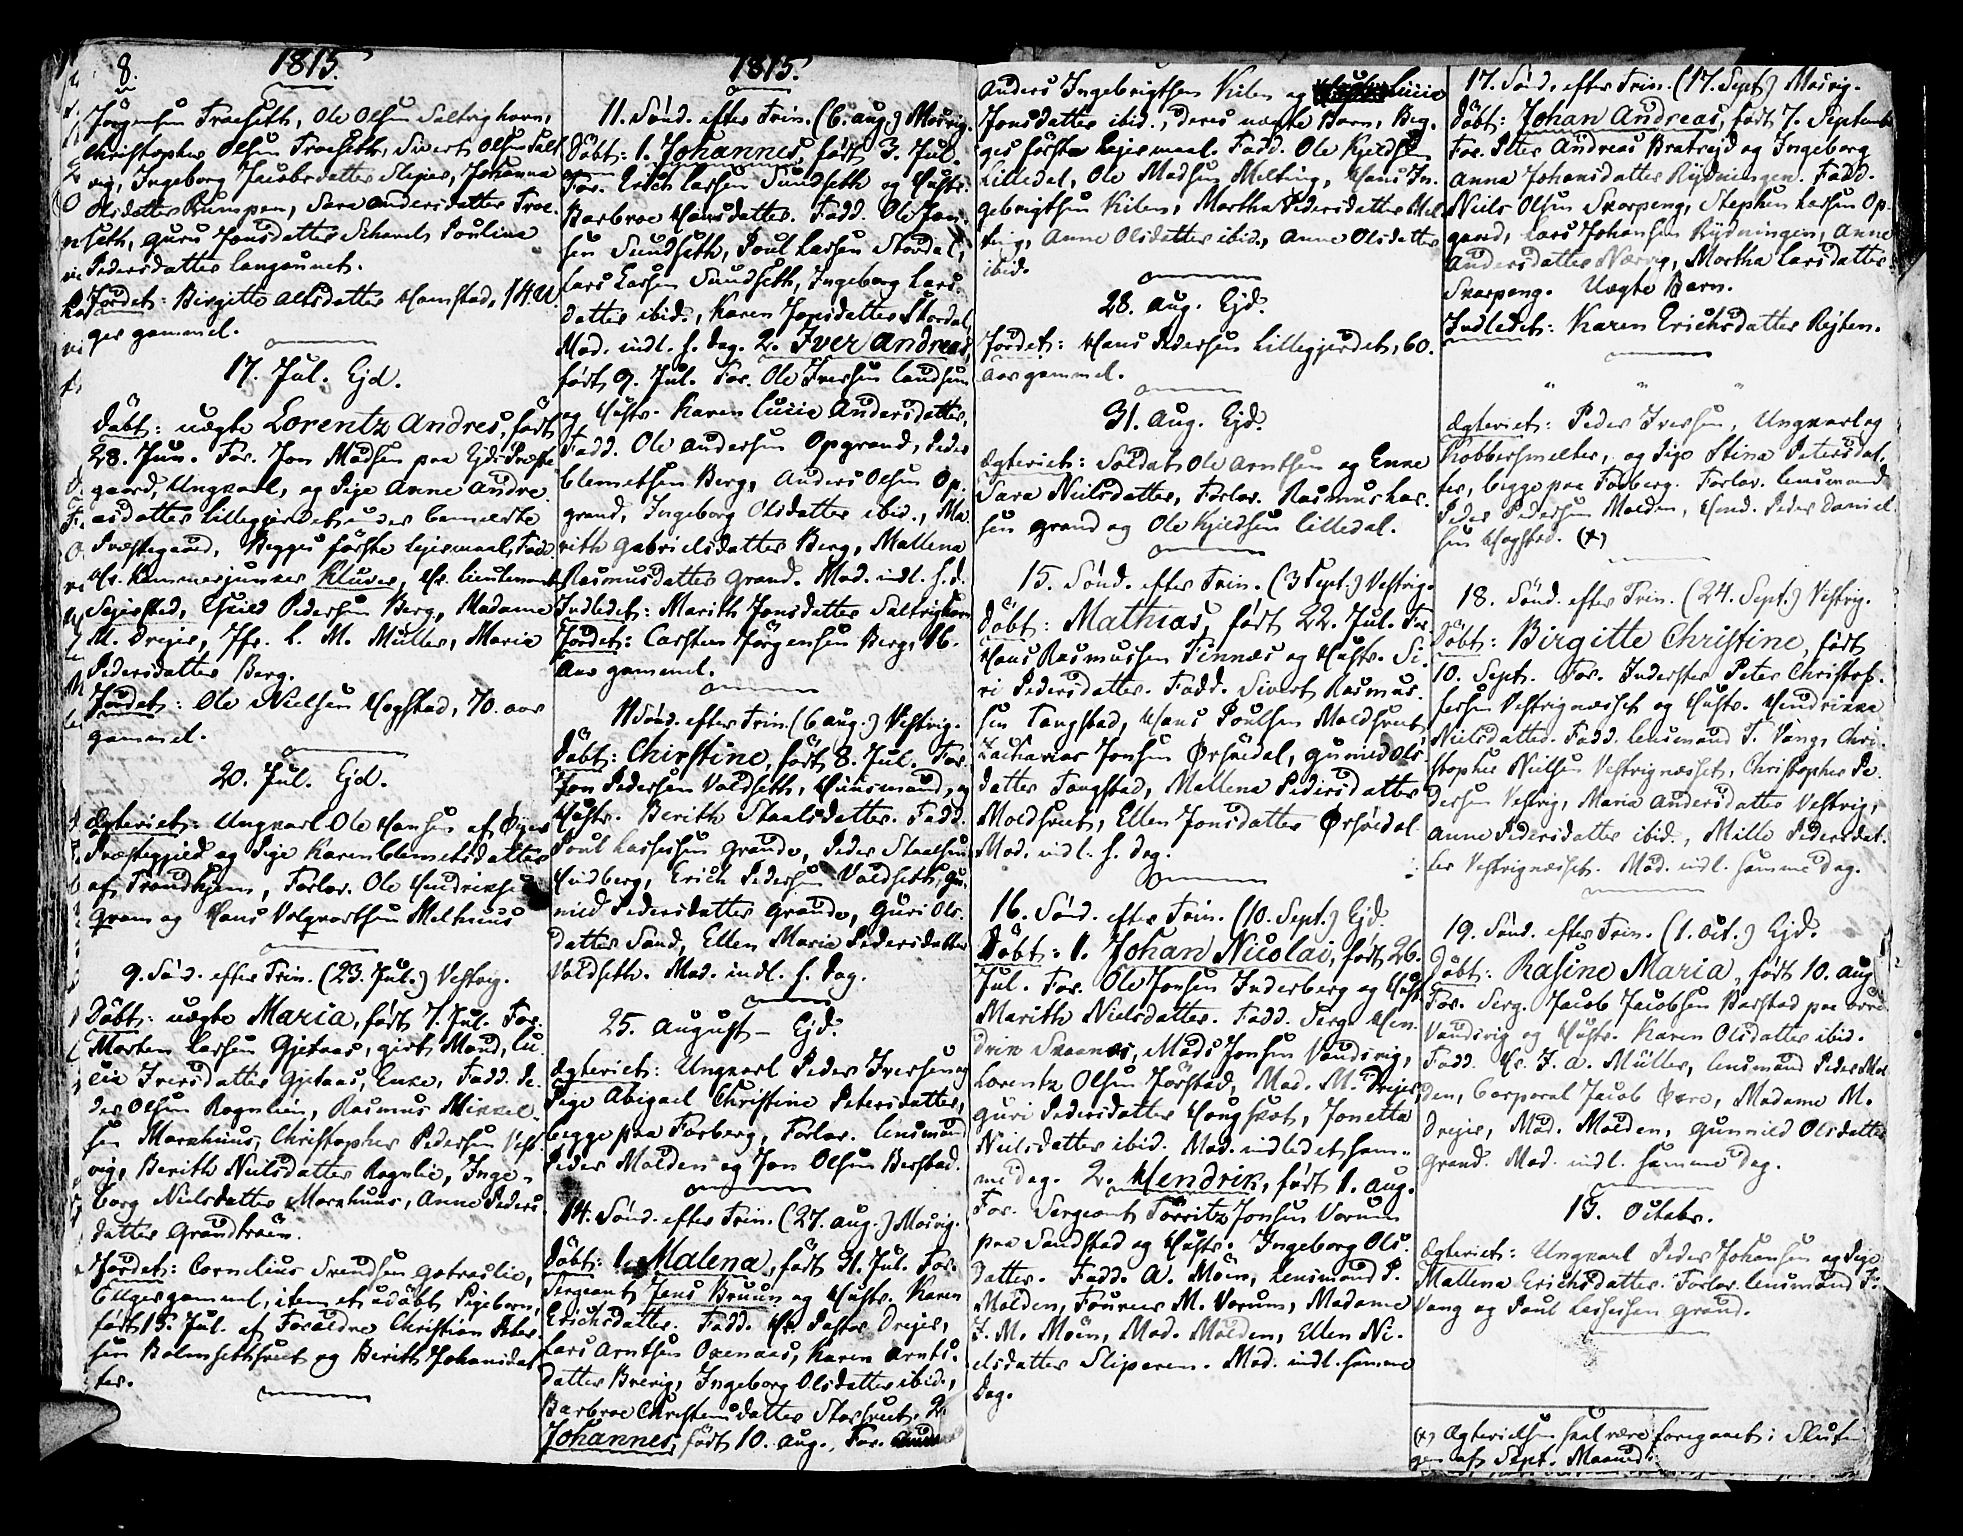 8.
1815.
Jörgensen Troeseth, Ole Olsen Saltvighavn,
Christopher Olsen Troeseth, Sivert Olsen Salt
vig, Ingeborg Jacobsdatter Slejer, Johanna
Olsdatter Rumpen, Sara Andersdatter Troe
seth, Guru Jonsdatter, Paulina
Pedersdatter Langaunet.
Jordet: Birgitte Olsdatter Hamstad, 14 U
ger gammel.
17. Jul. Ejd.
Döbt: uægte Lorentz Andres, födt
28. Jun. For. Jon Madsen paa Ejd. Præste
gaard, Ungkarl, og Pige Anne Andre
asdatter Lillegjerdet under bemeldte
Præstegaard, Begges förste Lejermaal. Fadd.
Hr. Kammerjunker Klüver, Hr. Lieutenant
Sejersted, Eskild Pedersen Berg, Madame
M. Drejer, Jfr. L. M. Müller, Maria
Pedersdatter Berg.
Jordet: Ole Nielsen Hogstad, 70. Aar
gammel.
20. Jul. Ejd.
Ægteviet: Ungkarl Ole Hansen af Öjer
Præstegjeld og Pige Karen Clemetsdatter
af Trondhjem, Forlov. Ole Hendriksen
Gram og Hans Volqvartsen Melhuus
9. Sönd. efter Trin. (23. Jul.) Vestvig.
Döbt: uægte Maria, födt 7. Jul. For.
Morten Larsen Gjetaas, gift Mand, Lu
cia Iversdatter Gjetaas, Enke, Fadd. Pe
der Olsen Rognlien, Rasmus Mikkel
sen Markhuus, Christopher Pedersen Vest
vig, Berith Nielsdatter Rognlie, Inge
borg Nielsdatter Markhuus, Anne Peders
datter Grandtröen.
Jordet: Cornelius Svendsen Gotraslie,
6 Uger gammel, item et udöbt Pigebarn,
födt 15. Jul. af Forældre Christian Peter
sen Bolmsethhvet og Berith Johansdat
ter.
1815.
11. Sönd. efter Trin. (6. Aug.) Mosvig.
Döbt: 1. Johannes, födt 3. Jul.
For. Erich Larsen Sundseth og Hustr.
Barbroe Hansdatter. Fadd. Ole Han
sen Sundseth, Poul Larsen Stordal,
Lars Larsen Sundseth, Ingeborg Lars
datter ibid., Karen Jonsdatter Stordal,
Mod. indl. s. Dag. 2. Iver Andreas,
födt 9. Jul. For. Ole Iversen Landsem
og Hustr. Karen Lucia Andersdatter,
Fadd. Ole Andersen Opgrand, Peder
Clemetsen Berg, Anders Olsen Op
grand, Ingeborg Olsdatter ibid., Ma
rith Gabrielsdatter Berg, Mallena
Rasmusdatter Grand. Mod. indl. s. d.
Indledet: Marith Jonsdatter Saltvighavn
Jordet: Carsten Jörgensen Berg, 16.
Aar gammel.
11 Sönd. efter Trin. (6 Aug.) Vestvig.
Döbt: Christine, födt 8. Jul. For.
Jon Pedersen Valdseth, Huusmand, og
Hustr. Berith Staalsdatter. Fadd.
Poul Lassesen Grande, Peder Staalsen
Hindberg, Erich Pedersen Valdseth, Gu
nild Pedersdatter Grande, Guri Ols
datter Sand, Ellen Maria Pedersdatter
Valdseth. Mod. indl. s. Dag.
25. August – Ejd.
Ægteviet: Ungkarl Peder Iversen og
Pige Abigael Christine Petersdatter,
begge paa Forberg, Forlov. Lensmand
Peder Molden og Jon Olsen Berstad.
14. Sönd. efter Trin. (27. Aug.) Mosvig.
Döbt: 1. Malena, födt 31. Jul. For.
Sergeant Jens Bruun og Hustr. Karen
Erichsdatter. Fadd. Hr. Pastor Drejer,
Lars Arntsen Oxenaas, Karen Arnts
datter Brevig, Ingeborg Olsdatter ibid.,
Barbroe Christensdatter Storhvet. 2.
Johannes, födt 10. Aug., For.
Anders Ingebrigtsen Kilen og Lucia
Jonsdatter ibid., deres uægte Barn, Beg
ges förste Lejermaal. Fadd. Ole Kjeldsen
Lilledal, Ole Madsen Melting, Hans In
gebrigtsen Kilen, Martha Pedersdatter Mel
ting, Anne Olsdatter ibid., Anne Olsdatter
ibid.
28. Aug. Ejd.
Jordet: Hans Pedersen Lillegjerdet, 60.
Aar gammel.
31. Aug. Ejd.
Ægteviet: Soldat Ole Arntsen og Enke
Sara Nielsdatter, Forlov. Rasmus Lar
sen Grand og Ole Kjeldsen Lilledal.
15. Sönd. efter Trin. (3 Sept.) Vestvig.
Döbt: Mathias, födt 22. Jul. For
Hans Rasmussen Finnæs og Hustr. Si
ri Pedersdatter. Fadd. Sivert Rasmus
sen Tangstad, Hans Poulsen Moldhvet
Zacharias Jonsen Örsjödal, Gunild Ols
datter Tangstad, Mallena Pedersdatter
Moldhvet, Ellen Jonsdatter Örsjödal
Mod. indl. s. Dag.
16. Sönd. efter Trin. (10. Sept.) Ejd.
Döbt: 1. Johan Nicolai, födt 26.
Jul. For. Ole Jonsen Inderberg og Hust
Marith Nielsdatter. Fadd. Serg. Hen
drik Skaanes, Mads Jonsen Vaudsvig,
Lorentz Olsen Jörstad, Mad. M. Drejer,
Guri Pedersdatter Haugskot, Jonetta
Nielsdatter ibid. Mod. indledet sam
me Dag. 2. Hendrik, födt 1. Aug.
For. Sergeant Torritz Jonsen Vorum
paa Sandstad og Hustr. Ingeborg Ols
datter. Fadd. A. Möin, Lensmand P.
Molden, Foureer M. Vorum, Madame
J. M. Möin, Mad. Molden, Ellen Ni
elsdatter Sliperen. Mod. indl. samme
Dag.
17. Sönd. efter Trin. (17. Sept) Mosvig.
Döbt: Johan Andreas, födt 7. September
For. Peter Andreas Bratrejd og Ingeborg
Anna Johansdatter Rydningen. Fadd.
Niels Olsen Skarpeng, Stephen Larsen Op
grand, Lars Johansen Rydningen, Anne
Andersdatter Nærvig, Martha Larsdatter
Skarpeng. Uægte Barn.
Indledet: Karen Erichsdatter Rejten.
" " "
Ægteviet: Peder Iversen, Ungkarl og
Kobbersmelter, og Pige Stina Petersdat
ter, begge paa Fosberg. Forlov. Lensmand
Peder Pedersen Molden, Hend. Peder Daniel
sen Hogstad. (x)
18. Sönd. efter Trin. (24. Sept.) Vestvig.
Döbt: Birgitte Christine, födt
10. Sept. For. Inderster Peter Christof
fersen Vestvignesset og Hustr. Hendrikka
Nielsdatter. Fadd. Lensmand T. Vang, Chri
stopher Nielsen Vestvignæsset, Christopher Pe
dersen Vestvig, Maria Andersdatter Vestvig,
Anne Pedersdatter ibid., Mille Pedersdat
ter Vestvignæsset. Mod. indl. samme Dag.
19. Sönd. efter Trin. (1. Oct.) Ejd.
Döbt: Rasine Maria, födt 10. Aug
For. Serg. Jacob Jacobsen Barstad paa
Vaudsvig og Hustr. Karen Olsdatter ibid.
Fadd. Hr. J. A. Müller, Lensmand Peder Mol
den, Corporal Jacob Övre, Madame M.
Drejer, Mad. Molden, Gunnild Olsdatter
Grand. Mod. indl. samme Dag.
15. Octobr.
Ægteviet: Ungkarl Peder Johansen og Pige
Mallena Erichsdatter. Forlov. Lensmand T.
Vang og Poul Lassesen Grand.
(x) Ægtevielsen skal være foregaaet i Slutnin
gen af Sept. Maaned.